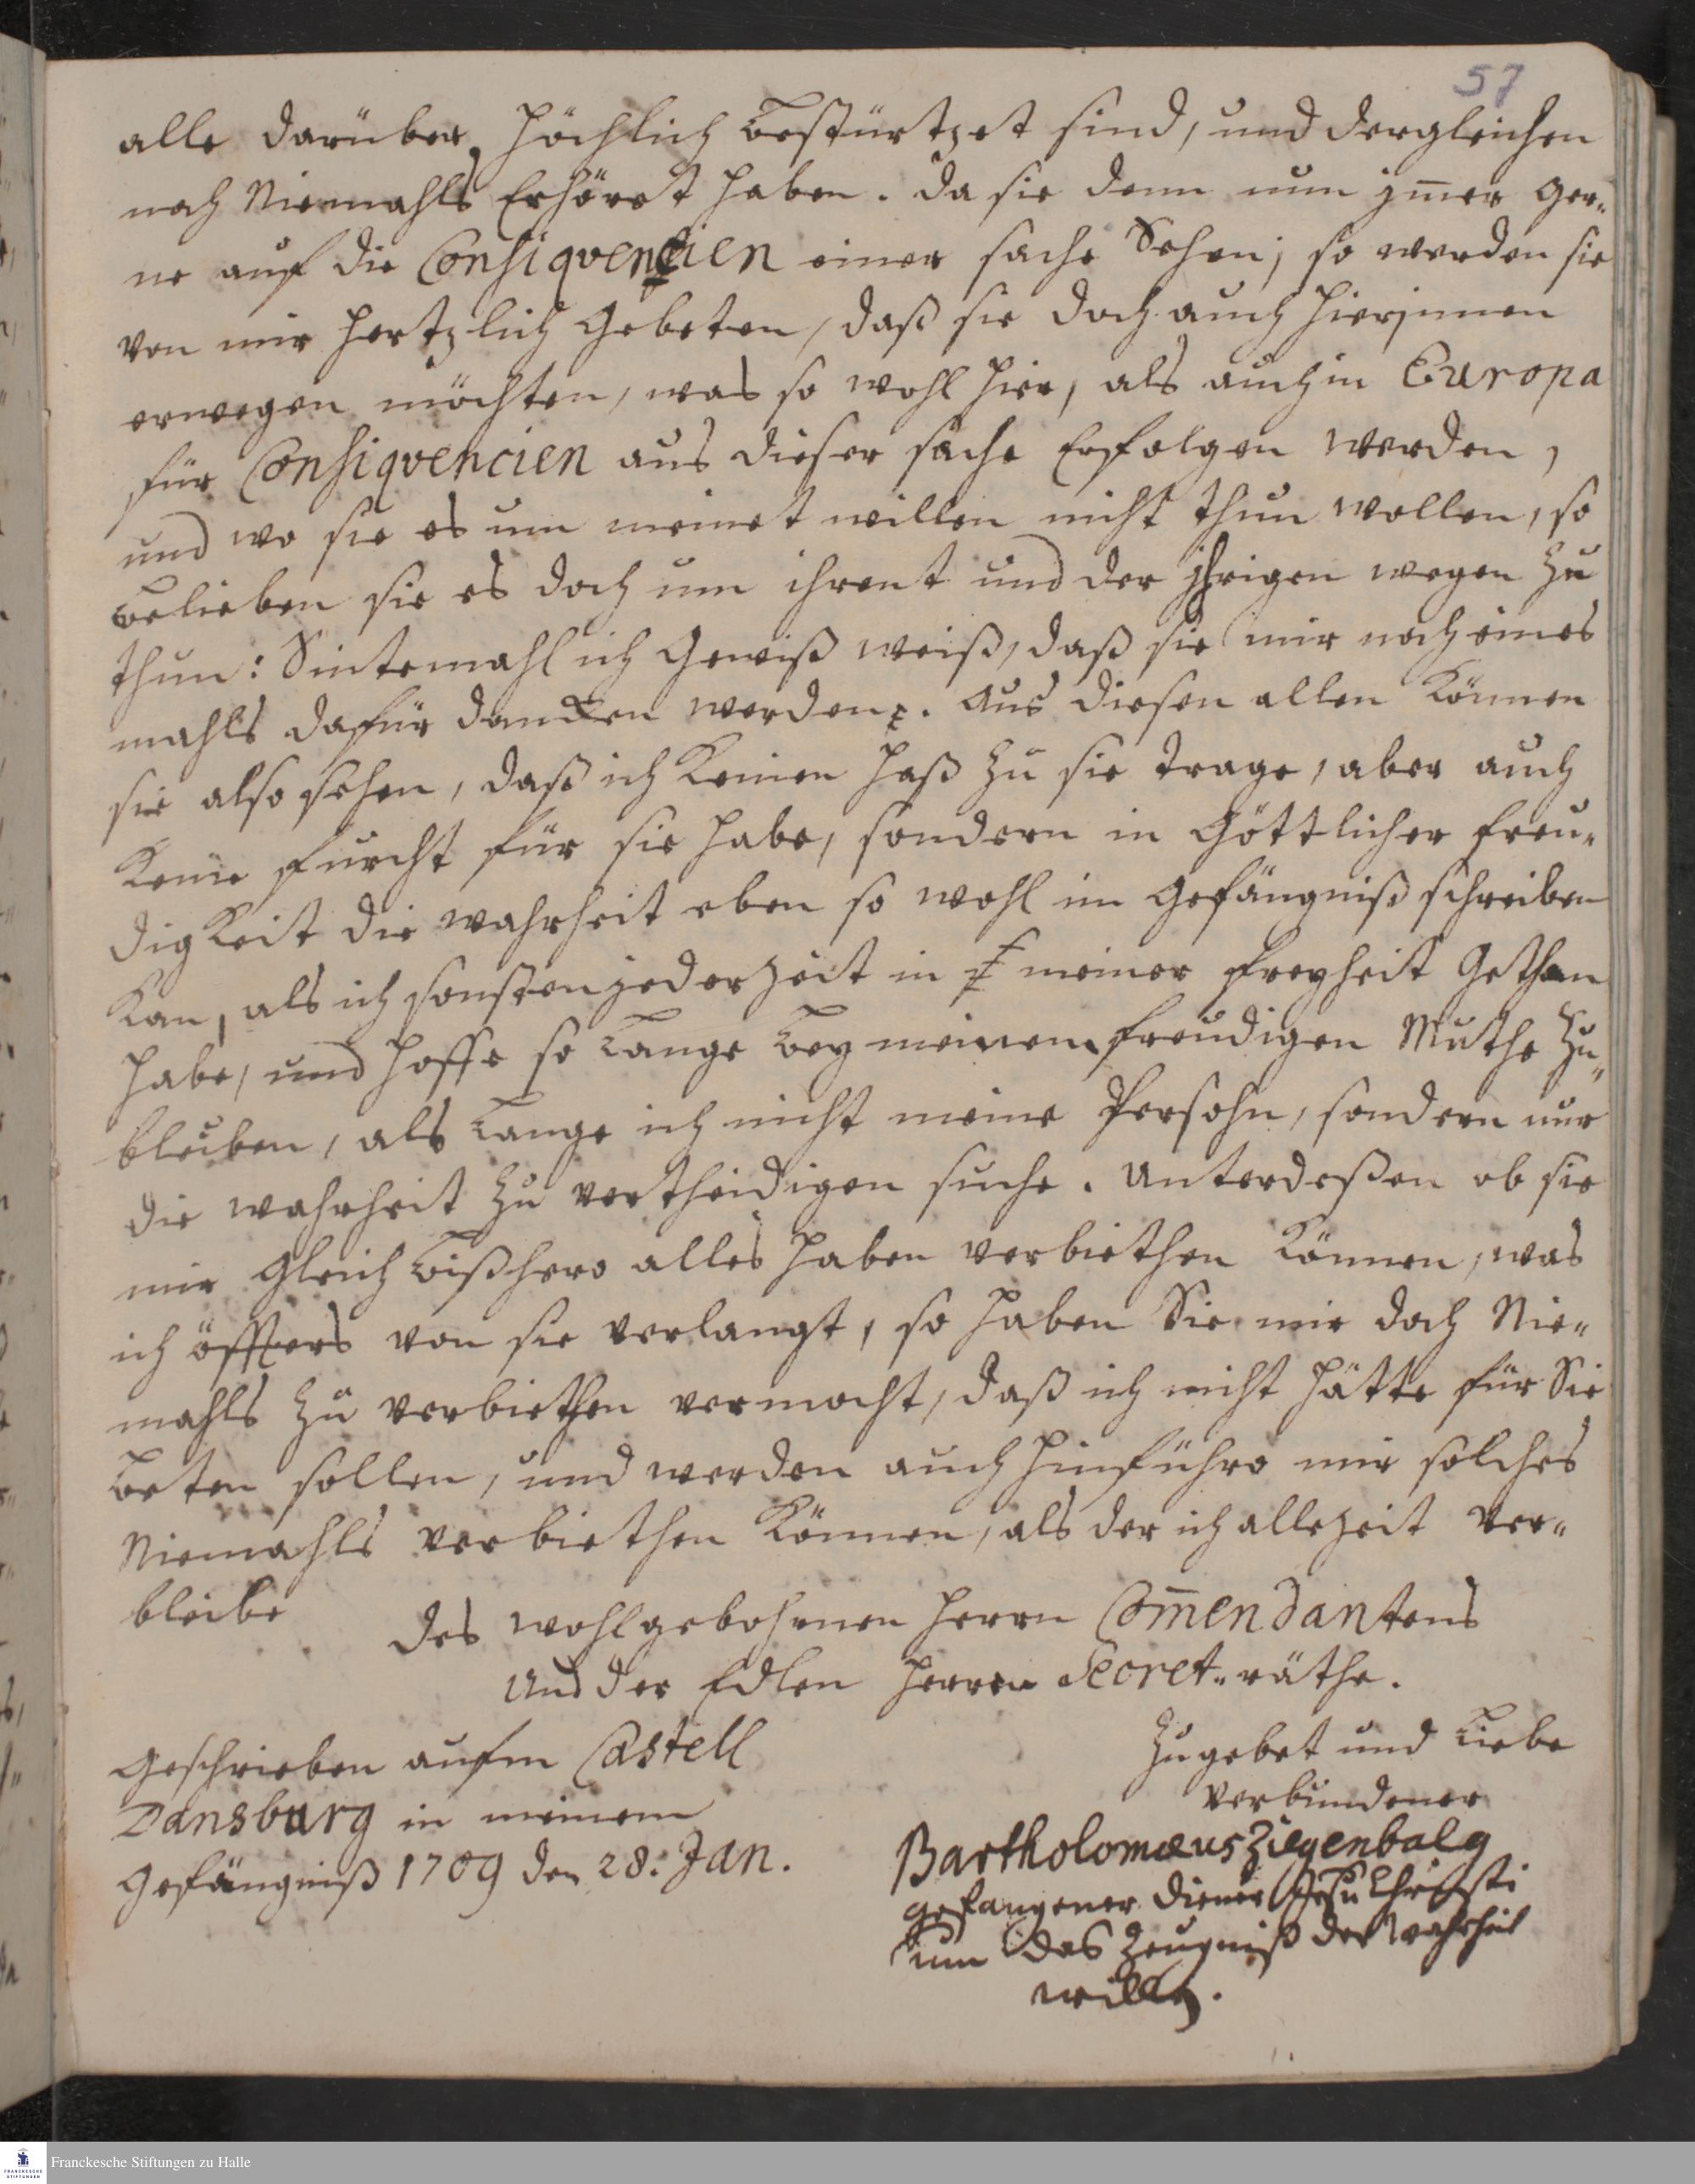 57
alle darüber höchlich bestürtzet sind, und dergleichen
noch Niemahls Erhöret haben. Da sie denn nun jm̄er ger„
ne auf die Consiqvencien einer sache Sehen; so werden sie
von mir hertzlich Gebeten, daß sie doch auch hierjnnen
erwegen möchten, was so wohl hier, als auch in Europa
für Consiqvencien aus dieser sache Erfolgen werden,
und wo sie es um meinet willen nicht thun wollen, so
belieben sie es doch um ihrent und der jhrigen wegen zu
thun: Sintemahl ich Gewiß weiß, daß sie mir noch eines
mahls dafür dancken werden. Aus diesen allen Können
sie also sehen, daß ich Keinen haß zu sie trage, aber auch
Keine furcht für sie habe, sondern in Göttlicher freu„
digKeit die wahrheit eben so wohl im Gefängniß schreiben
Kan, als ich sonsten jederzeit in meiner freyheit Gethan
habe, und hoffe so Lange bey meinem freudigen Muthe zu„
bleiben, als Lange ich nicht meine Persohn, sondern nur
die wahrheit zu vertheidigen suche. Unterdeßen ob sie
mir Gleich bißhero alles haben verbiethen Können, was
ich öffters von sie verlangt, so haben Sie mir doch Nie„
mahls zu verbiethen vermocht, daß ich nicht hätte für Sie
beten sollen, und werden auch hinführo mir solches
Niemahls verbiethen Können, als der ich allezeit ver„
bleibe
Des wohlgebohrnen herrn Com̄endantens
Und der Edlen herren Secret„räthe.
Zu gebet und Liebe
verbundener
Geschrieben aufm Castell
Dansburg in meinem
Gefängniß 1709 den 28. Jan.
Bartholomæus Ziegenbalg
gefangener Diener Jesu Christi
um das Zeugniß der Wahrheit
willen.
Franckesche Stiftungen zu Halle
FRANCKESCHE
STIFTUNGEN